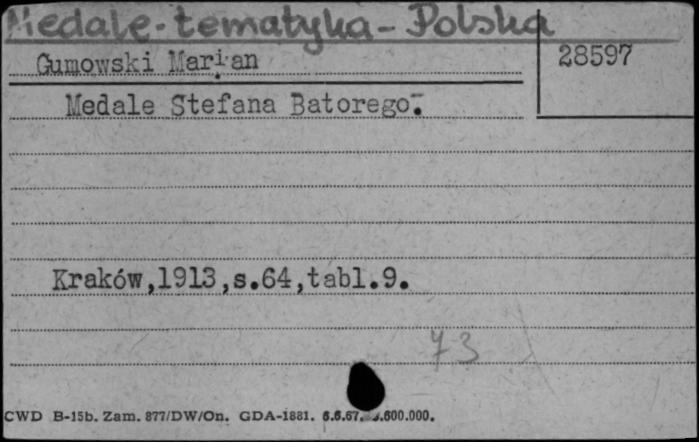 Medale-tematyka-Polska
Gumowski Marian
28597
Medale Stefana Batorego.
Kraków,1913,s.64,tabl.9.
73
CWD B-15b. Zam. 877/DW/On. GDA-1881. 6.6.67. .600.000.